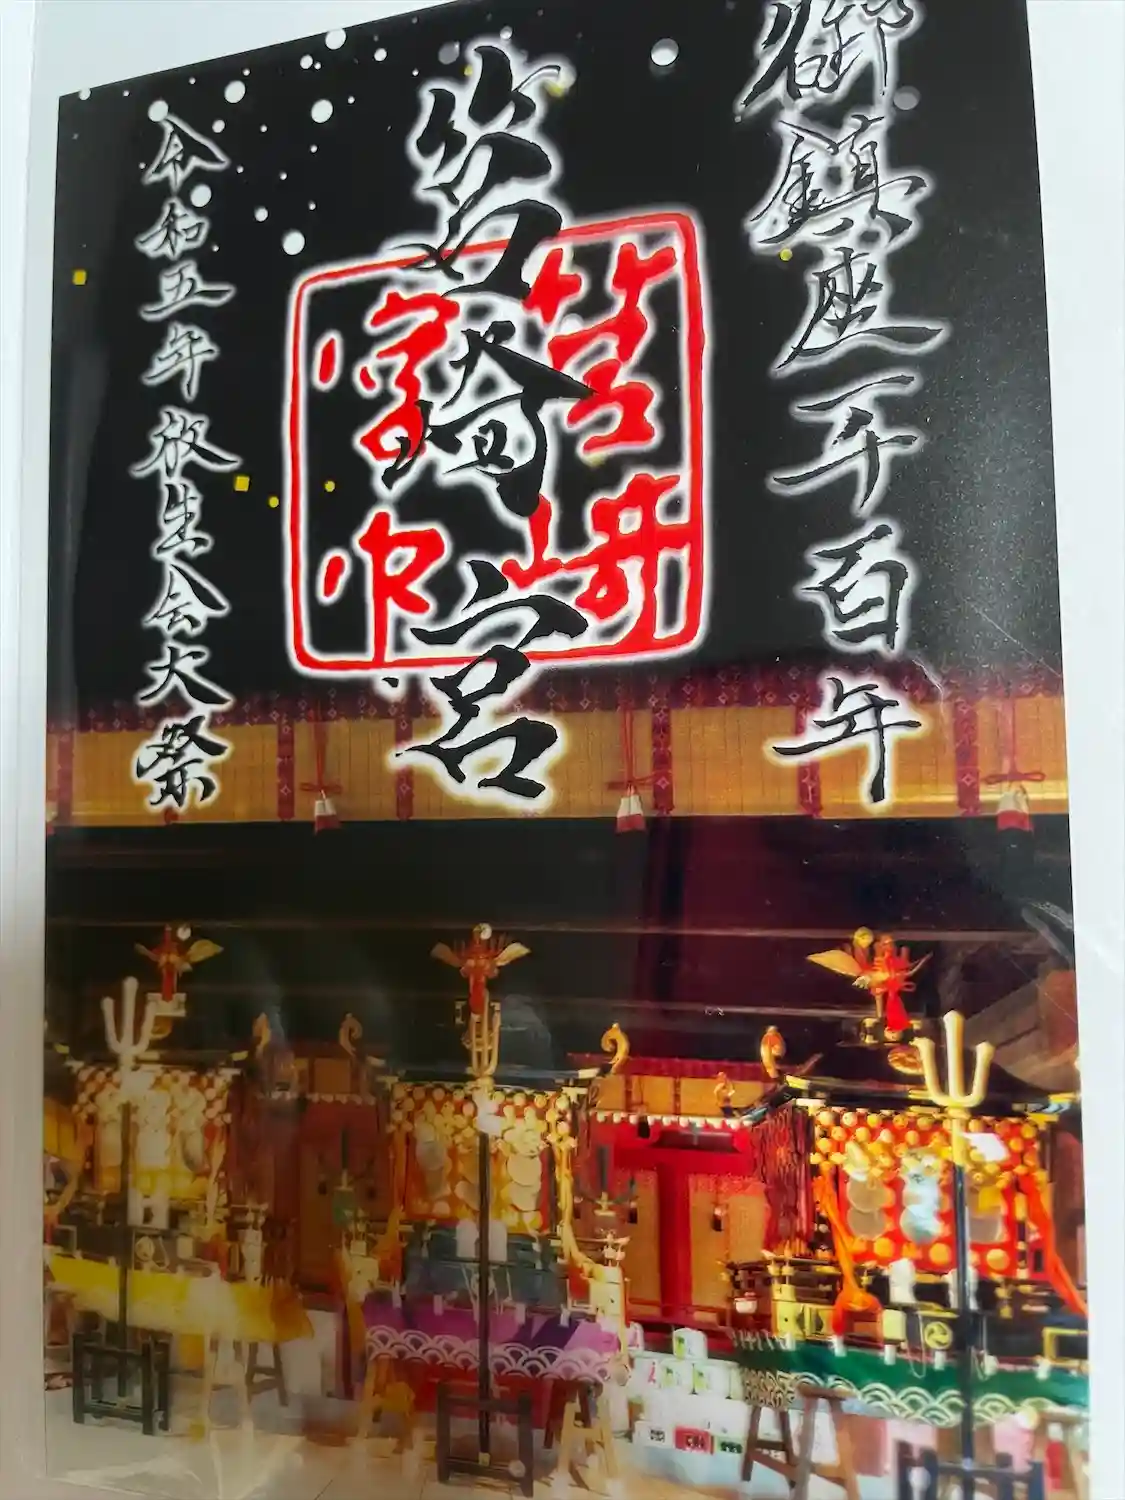 御鎮座一千百年
筥崎宮
筥崎宮印
令和五年放生会大祭